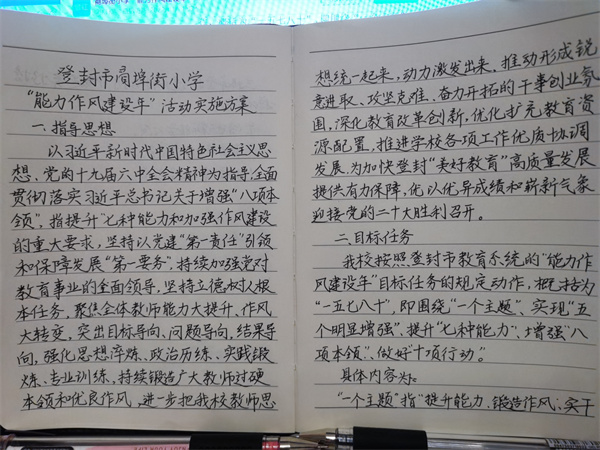 登封市嵩埠街小学
“能力作风建设年”活动实施方案
一、指导思想
以习近平新时代中国特色社会主义思
想、党的十九届六中全会精神为指导，全面
贯彻落实习近平总书记关于增强“八项本
领”，指提升“七种能力和加强作风建设
的重大要求，坚持以党建“第一责任”引领
和保障发展“第一要务”，持续加强党对
教育事业的全面领导，坚持立德树人根
本任务，聚焦全体教师能力大提升、作风
大转变，突出目标导向、问题导向，结果导
向，强化思想淬炼、政治历练、实践锻
炼、专业训练，持续锻造广大教师过硬
本领和优良作风，进一步把我校教师思
想统一起来，动力激发出来，推动形成锐
意进取、攻坚克难、奋力开拓的干事创业氛
围，深化教育改革创新，优化扩充教育资
源配置，推进学校各项工作优质协调
发展，为加快登封“美好教育”高质量发展
提供有力保障，优以优异成绩和崭新气象
迎接党的二十大胜利召开。
二、目标任务
我校按照登封市教育系统的“能力作
风建设年”目标任务的规定动作，概括为
“一五七八十”，即围绕“一个主题”、实现“五
个明显增强”、提升“七种能力”、增强“八
项本领”、做好“十项行动”。
具体内容为：
“一个主题”指“提升能力，锻造作风，实干